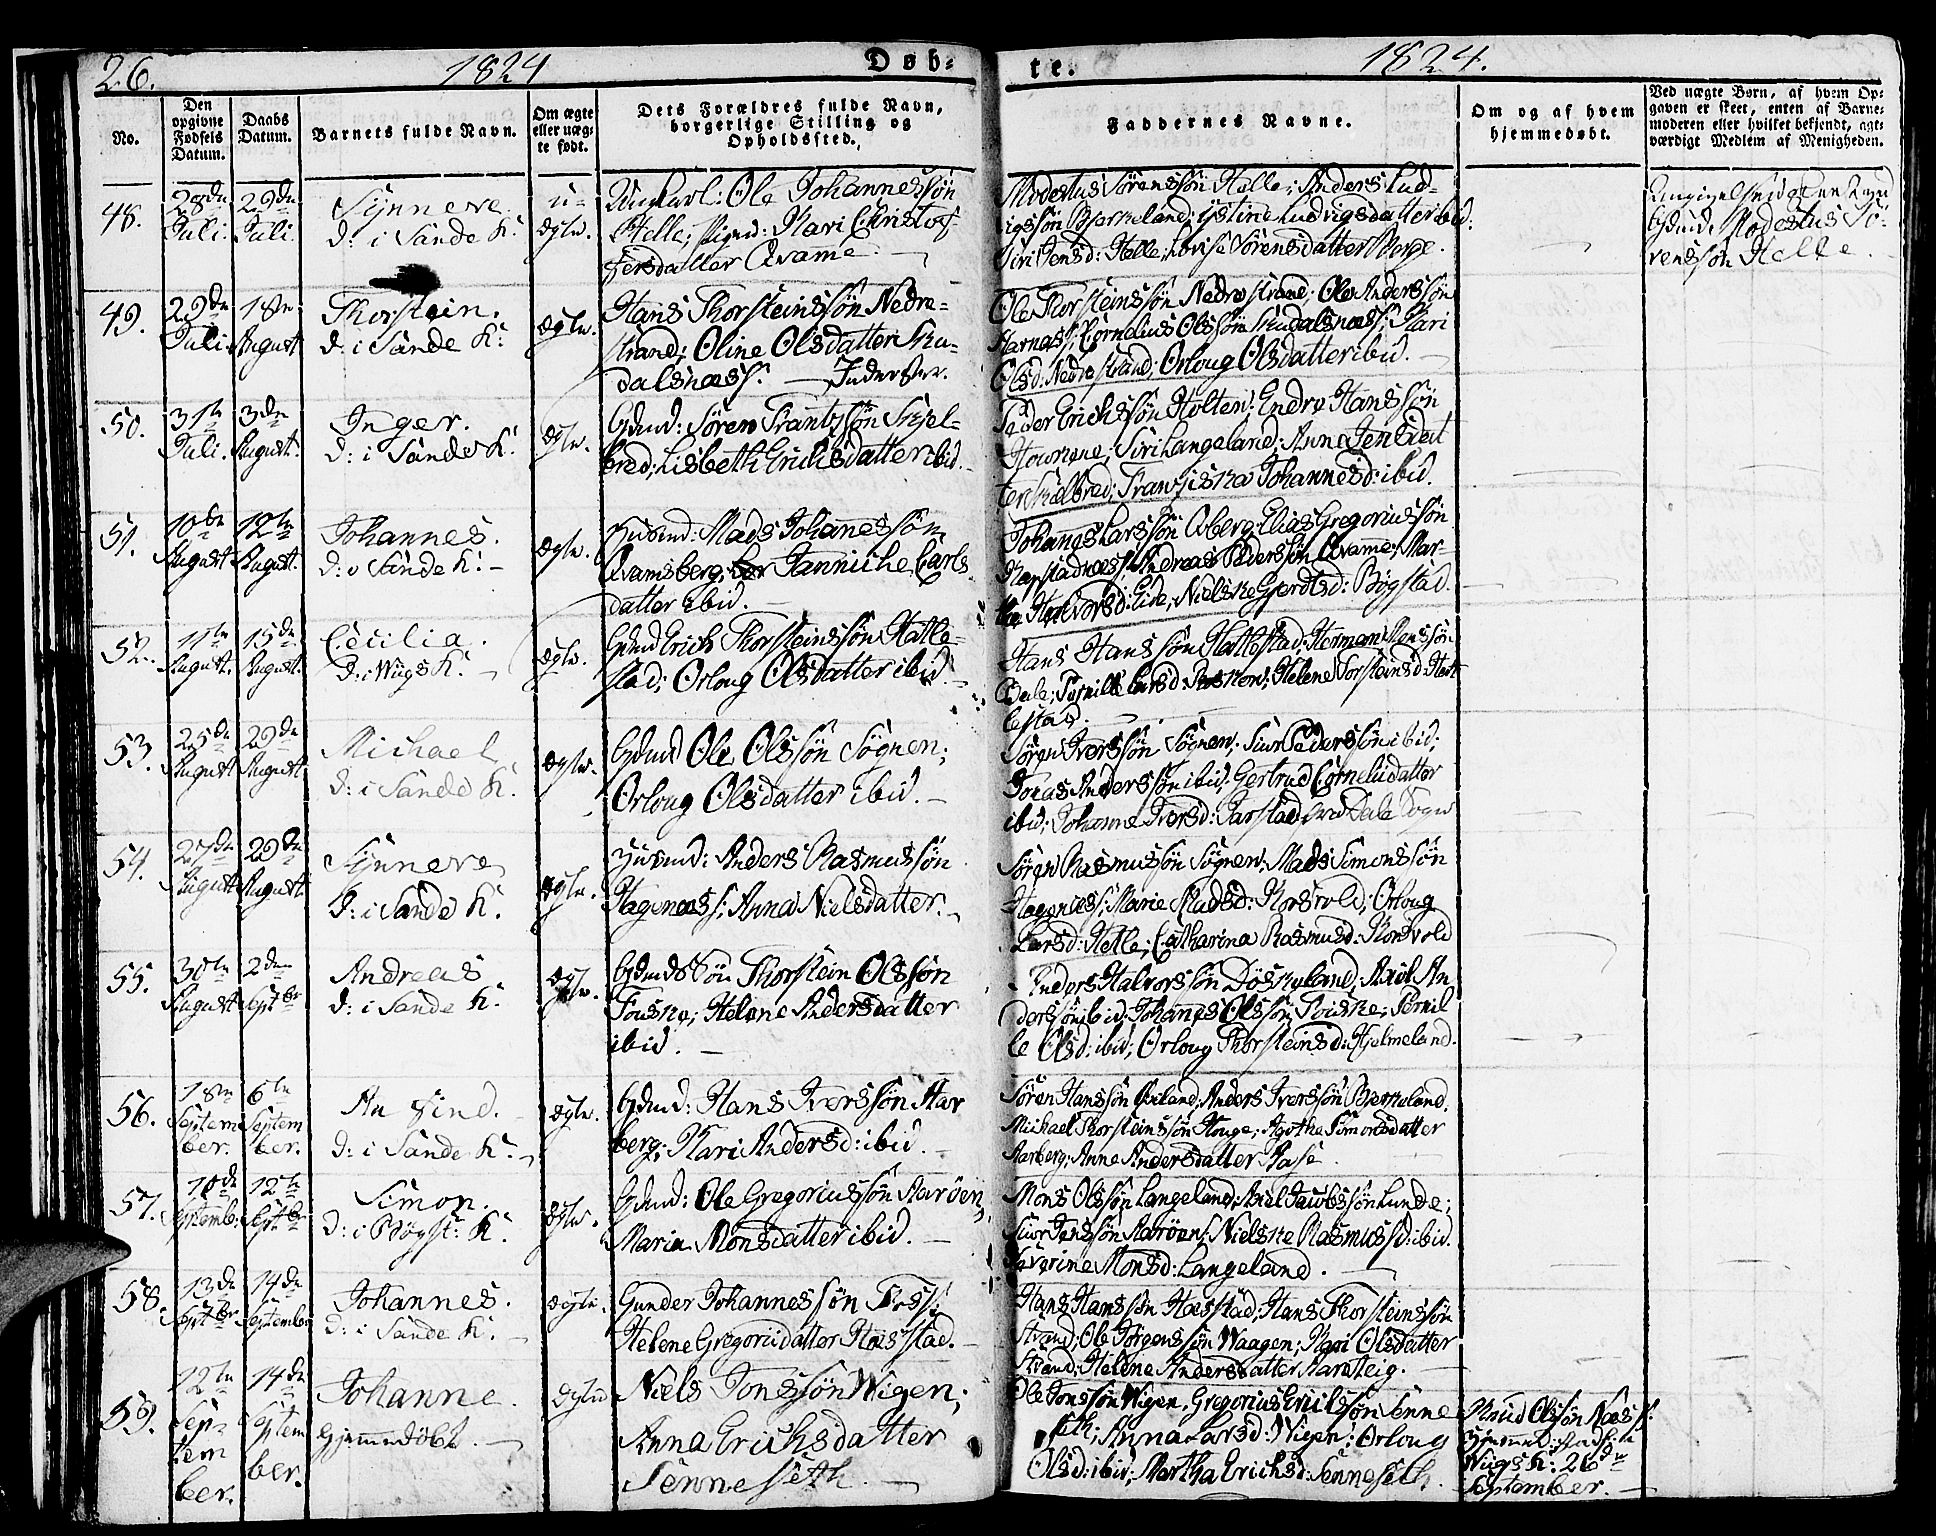 26. 1824 Døb-
te. 1824.
No. Den opgivne Fødsels Datum. Daabs Datum. Barnets fulde Navn. Om ægte eller uæg-te født. Dets Forældres fulde Navn, borgerlige Stilling og Opholdssted.
Faddernes Navne. Om og af hvem hjemmedøbt. Ved uægte Børn, af hvem Op-gaven er skeet, enten af Barne-moderen eller hvilket bekjendt, agt-værdigt Medlem af Menigheden.
48. 28de Juli. 29de Juli. Synneve. u- Ungkarl: Ole Johannessøn
D: i Sande K: ægte. Helle; Pigen: Kari Christof-
fersdatter Qvamme. —
Modestus Sørenssøn Helle; Anders Lud-
vigssøn Bjerkeland; Ystine Ludvigsdatter ibid:
Siri Jensd: Helle; Lovise Sørensdatter Berge.
Gdmd. Modestus Sø-
renssøn Helle.
49. 29de Juli. 1ste August Thorstein. ægte. Hans Thorsteinssøn Nedre-
D: i Sande K: strand; Oline Olsdatter Sku-
dalsnæss. — Inderster.
Ole Thorsteinssøn Nedrestrand; Ole Anderssøn
Harnæss; Cornelius Olssøn Skudalsnæss; Kari
Olsd: Nedrestrand; Orloug Olsdatter ibid. —
50. 31te Juli. 3die August. Inger. ægte. Gdmd: Søren Frantssøn Skjel-
D: i Sande K: bred; Lisbeth Erichsdatter ibid. —
Peder Erichssøn Holten; Endre Hanssøn
Siri Langeland; Anna Jensdat
ter Skelbred; Johannesd: ibid.
51. 10de August 12te August. Johannes. ægte. Husmd: Mads Johannessøn
D: i Sande K: — Qvamsberg; Jannicke Carls
datter ibid.
Johannes Larssøn Aaberg; Elias Gregoriussøn
Kapstadnæss; Andreas Pederssøn Qvamme; Mar-
the Halvorsd: Eide, Nielske Gjerdtsd: Bøgstad.
52. 11te August. 15de August. Cecilia. ægte. Gdmd Erich Thorsteinssøn Hatle-
D: i Wiigs K: — stad; Orloug Olsdatter ibid. —
Hans Hanssøn Hatlestad; Herman Jenssøn
Dale; Pernille Larsd: Helene Torsteinsd: Hat
lestad. —
53. 25de August 29de August Michael ægte. Gdmd Ole Olssøn Sognen;
D: i Sande K: Orloug Olsdatter ibid. —
Søren Iverssøn Sognen; Siur Pederssøn ibid;
Jonas Anderssøn ibid; Gertrud Corneliidatter
ibid; Johanne Iversd: Dale Sogn
54. 27de August 29de August. Synneve ægte. Husmd: Anders Rasmussøn
D: i Sande K. Hagenæss; Anna Nielsdatter. —
Søren Rasmussøn Sognen; Mads Simonssøn
Hagenæss; Marie Madsd: Korsvold; Orloug
Larsd: Helle; Catharina Rasmusd: Korsvold
55. 30te August 2den Septbr Andreas ægte. Gdmds Søn Thorstein Olssøn
D: i Sande K. Fouske; Helene Andersdatter
ibid. —
Anders Halvorssøn Døskeland; Axel An
derssøn ibid; Johannes Olssøn Fouske; Pernil
le Olsd: ibid; Orloug Thorsteinsd: Hjelmeland.
56. 1ste September. 6te September. An find. ægte. Gdmd: Hans Iverssøn Aar
D: i Sande K. — berg; Kari Andersd: ibid. —
Søren Hanssøn Anders Iverssøn Bjerkeland,
Michael Thorsteinssøn Houge; Agothe Simonsdatter
Aarberg; Anne Andersdatter Aase.
57. 10de September 12te Septbr Simon. ægte. Gdmd: Ole Gregoriussøn Aarøen,
D: i Bøgst: K. Maria Monsdatter ibid. —
Mons Olssøn Langeland; Axel Jacobssøn Lunde;
Siur Jenssøn Aarøen; Nielske Rasmusd: ibid.
Severine Monsd: Langeland. —
58. 13de Septbr 14de September Johannes. ægte. Gunder Johannessøn Foss;
D: i Sande K. — Helene Gregoriidatter Hæstad. —
Hans Hanssøn Hæstad; Hans Thorsteinssøn
Strand; Ole Jørgenssøn Waagen; Kari Olsdatter
Strand; Helene Andersdatter Aarsteig.
59. 12te September. 14de September. Johanne. ægte Niels Jonssøn Wigen;
hjemmedøbt. — Anna Erichsdatter
Senneseth. —
Ole Jonssøn Wigen, Gregorius Erichssøn Senne
seth; Anna Larsd: Wigen; Orloug
Olsd: ibid; Martha Erichsd: Senneseth.
Knud Olssøn Næss.
Wiigs K: 26de
September. —